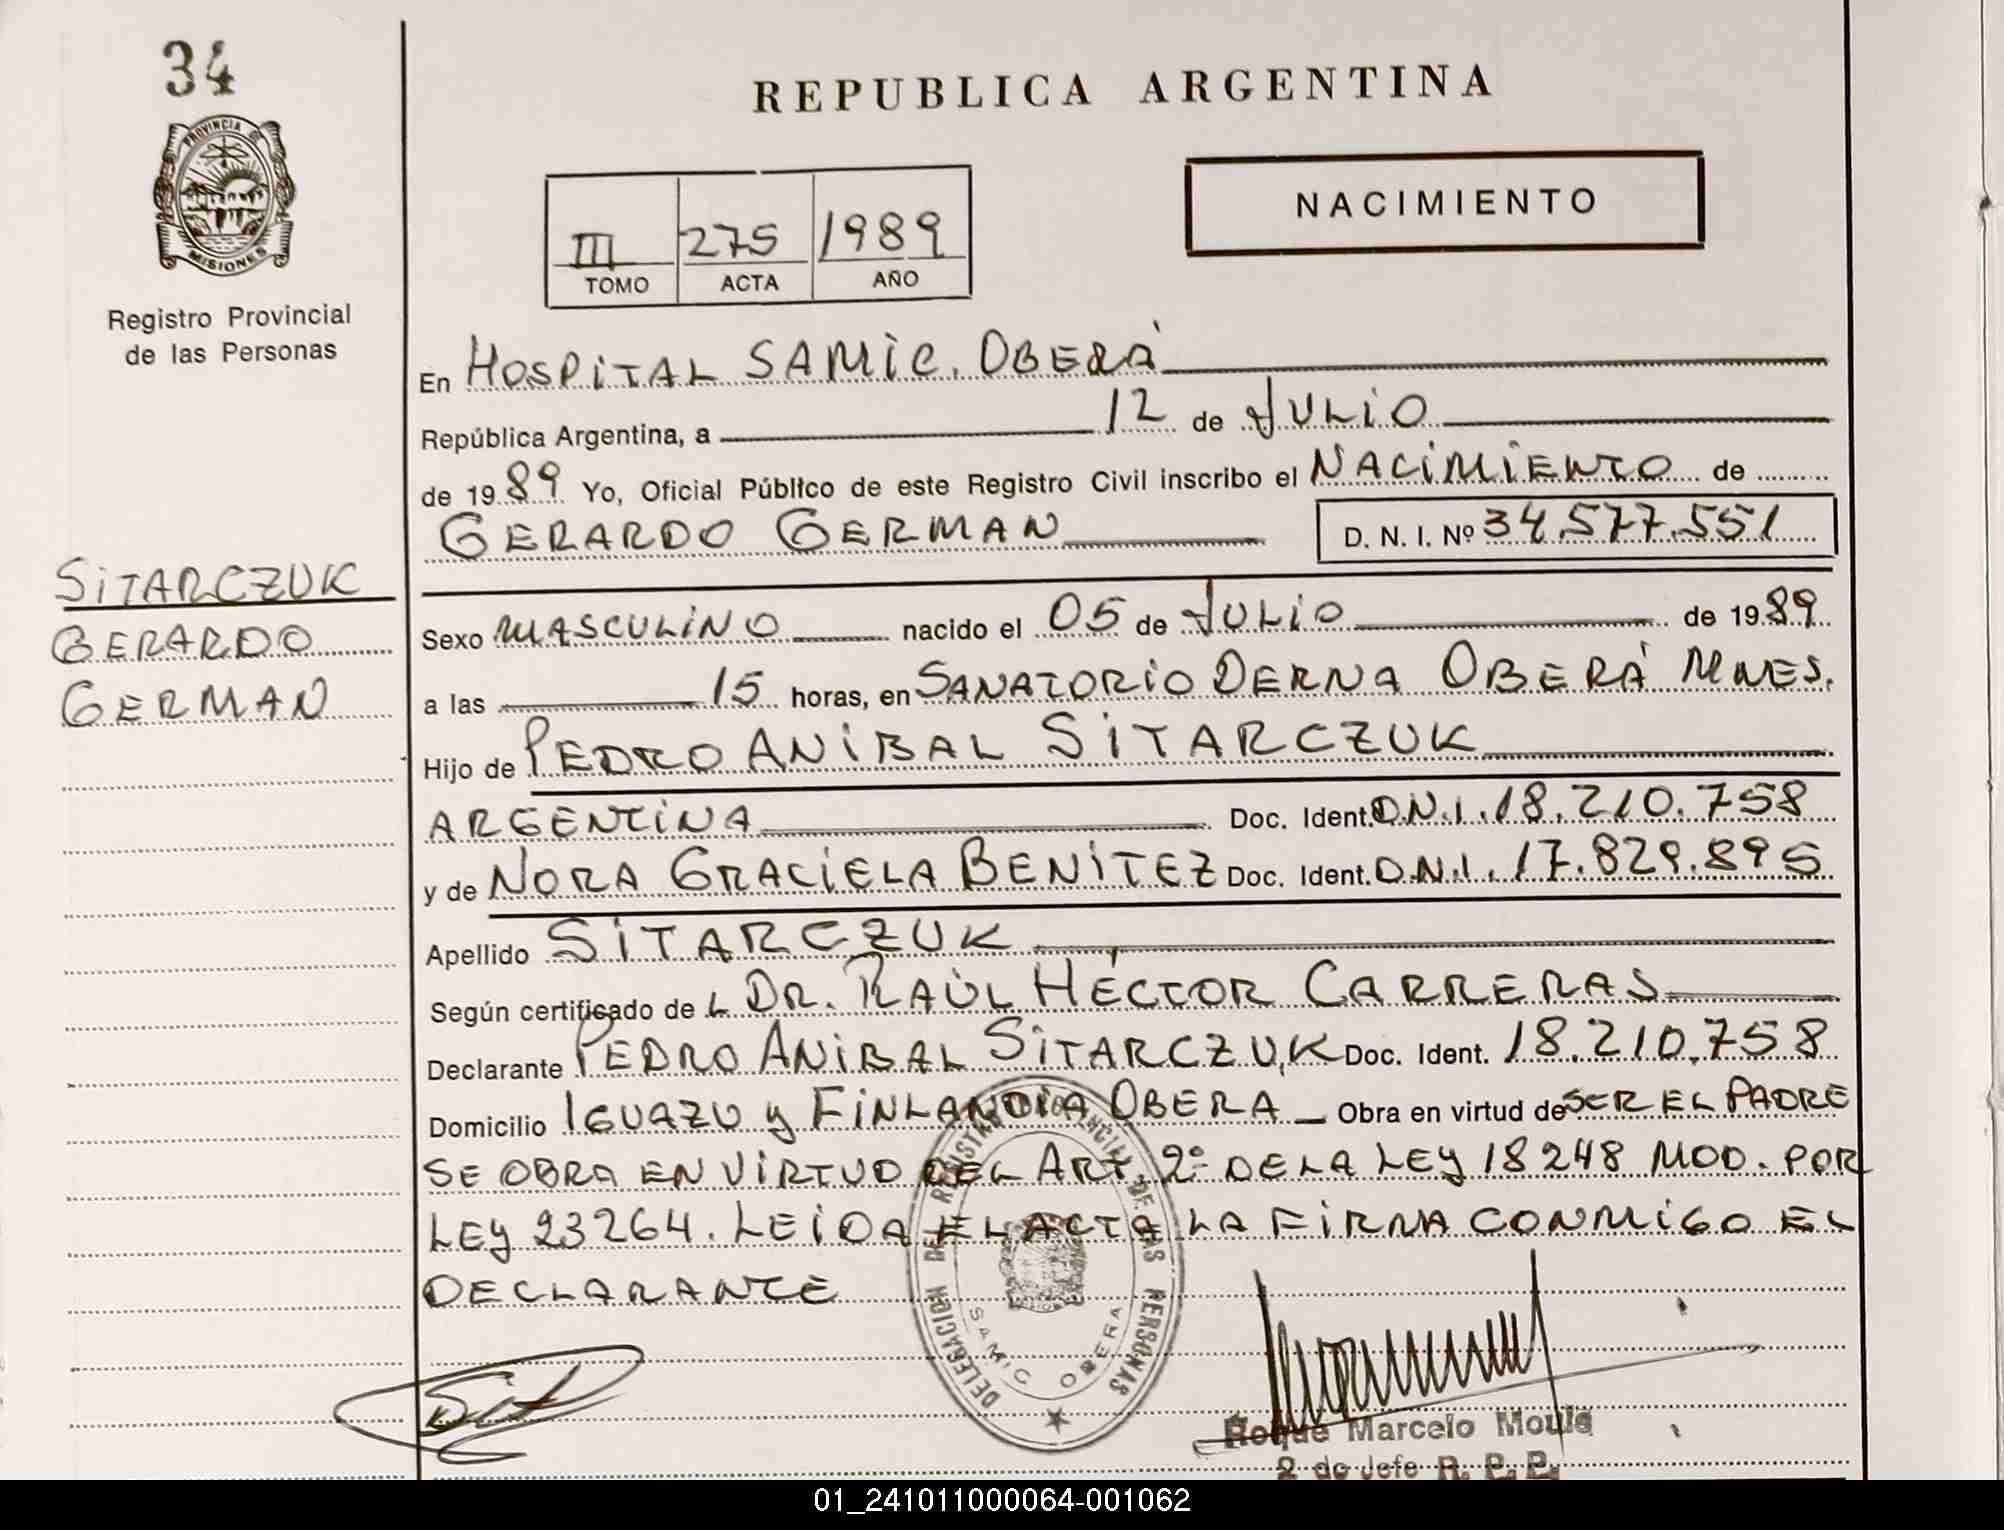 34
PROVINCIA DE
MISIONES
Registro Provincial
de las Personas
SITARCZUK
GERARDO
GERMAN
REPUBLICA ARGENTINA
NACIMIENTO
III 275 1989
TOMO ACTA AÑO
En HOSPITAL SAMIC. OBERÁ
República Argentina, a 12 de JULIO
de 1989 Yo, Oficial Público de este Registro Civil inscribo el NACIMIENTO de
GERARDO GERMAN D. N. I. Nº 34.577.551
Sexo MASCULINO nacido el 05 de JULIO de 1989
a las 15 horas, en SANATORIO DERNA OBERÁ MNES.
Hijo de PEDRO ANIBAL SITARCZUK
ARGENTINA Doc. Ident. D.N.I. 18.210.758
y de NORA GRACIELA BENITEZ Doc. Ident. D.N.I. 17.829.895
Apellido SITARCZUK
Según certificado de L DR. RAÚL HÉCTOR CARRERAS
Declarante PEDRO ANIBAL SITARCZUK Doc. Ident. 18.210.758
Domicilio IGUAZU y FINLANDIA OBERA Obra en virtud de SER EL PADRE
SE OBRA EN VIRTUD DEL ART. 2º DE LA LEY 18248 MOD. POR
LEY 23264. LEIDA EL ACTA LA FIRMA CONMIGO EL
DECLARANTE
DELEGACION DEL REGISTRO PROVINCIAL DE LAS PERSONAS
SAMIC OBERA
Roque Marcelo Moula
2 do Jefe R. P. P.
01_241011000064-001062